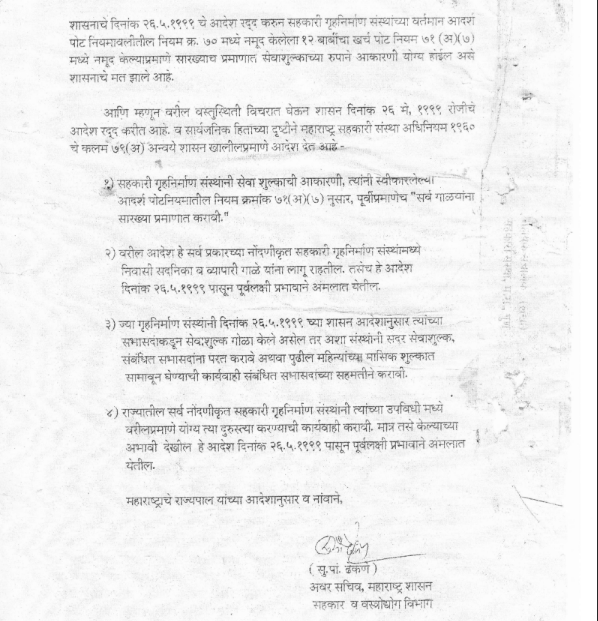 शासनाचे दिनांक २६.५.१९९९ चे आदेश रद्द करुन सहकारी गृहनिर्माण संस्थांच्या वर्तमान आदर्श
पोट नियमावलीतील नियम क्र. ७० मध्ये नमूद केलेला १२ बाबींचा खर्च पोट नियम ७१ (अ)(७)
मध्ये नमूद केल्याप्रमाणे सारख्याच प्रमाणात सेवाशुल्काच्या रुपाने आकारणी योग्य होईल असे
शासनाचे मत झाले आहे.
आणि म्हणून वरील वस्तुस्थिती विचरात घेऊन शासन दिनांक २६ मे, १९९९ रोजीचे
आदेश रद्द करीत आहे. व सार्वजनिक हिताच्या दृष्टीने महाराष्ट्र सहकारी संस्था अधिनियम १९६०
चे कलम ७९(अ) अन्वये शासन खालीलप्रमाणे आदेश देत आहे -
१) सहकारी गृहनिर्माण संस्थांनी सेवा शुल्काची आकारणी, त्यांनी स्वीकारलेल्या
आदर्श पोटनियमातील नियम क्रमांक ७१(अ)(७) नुसार, पूर्वीप्रमाणेच "सर्व गाळयांना
सारख्या प्रमाणात करावी."
२) वरील आदेश हे सर्व प्रकारच्या नोंदणीकृत सहकारी गृहनिर्माण संस्थांमध्ये
निवासी सदनिका व व्यापारी गाळे यांना लागू राहतील. तसेच हे आदेश
दिनांक २६.५.१९९९ पासून पूर्वलक्षी प्रभावाने अंमलात येतील.
३) ज्या गृहनिर्माण संस्थांनी दिनांक २६.५.१९९९ च्या शासन आदेशानुसार त्यांच्या
सभासदाकडून सेवाशुल्क गोळा केले असेल तर अशा संस्थांनी सदर सेवाशुल्क,
संबंधित सभासदांना परत करावे अथवा पुढील महिन्यांच्या मासिक शुल्कात
सामावून घेण्याची कार्यवाही संबंधित सभासदाच्या सहमतीने करावी.
४) राज्यातील सर्व नोंदणीकृत सहकारी गृहनिर्माण संस्थांनी त्यांच्या उपविधी मध्ये
वरीलप्रमाणे योग्य त्या दुरुस्त्या करण्याची कार्यवाही करावी. मात्र तसे केल्याच्या
अभावी देखील हे आदेश दिनांक २६.५.१९९९ पासून पूर्वलक्षी प्रभावाने अंमलात
येतील.
महाराष्ट्राचे राज्यपाल यांच्या आदेशानुसार व नांवाने,
( सु.पां. ढंकणे )
अवर सचिव, महाराष्ट्र शासन
सहकार व वस्त्रोद्योग विभाग